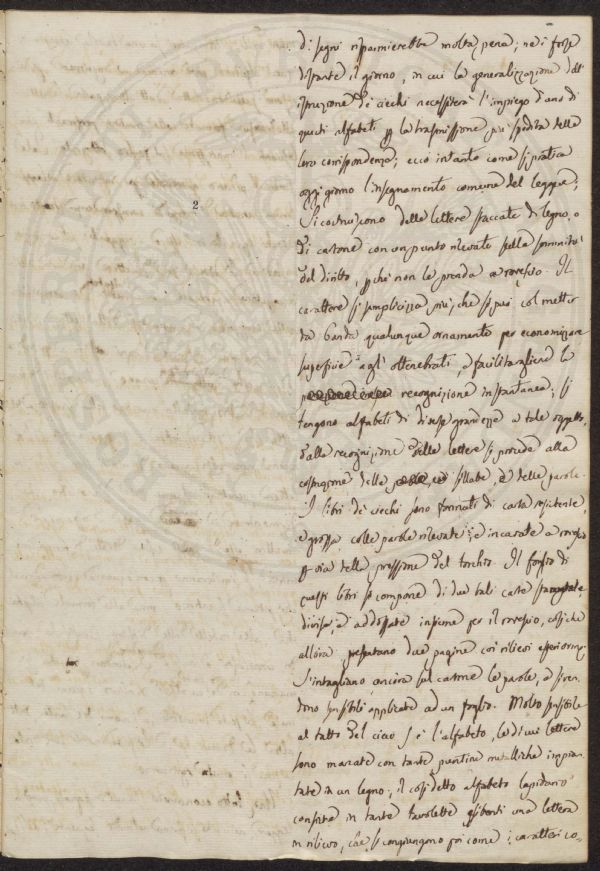 di segni risparmierebbe molta pena; nè è forse
distante il giorno, in cui la generalizzazione dell'
istruzione de' ciechi necessiterà l'impiego d'uno di
questi alfabeti p la trasmissione più spedita della
loro corrispondenza; ecco intanto come si pratica
oggi giorno l'insegnamento comune del leggere;
Si costruiscono delle lettere staccate di legno, o
di cartone con un punto rilevato sulla sommità
del diritto, pchè non le prenda a rovescio. Il
carattere si semplicizza più, che si può col metter
da banda qualunque ornamento per economizzare
superficie agl' ottenebrati, e facilitargliene la
recognizione instantanea; si
tengono alfabeti di diverse grandezze a tale oggetto,
dalla recognizione delle lettere si procede alla
costruzione delle sillabe, e delle parole.
I libri de' ciechi sono formati di carta resistente,
e grossa colle parole rilevate, e incavate a rovescio
p via della pressione del torchio. Il foglio di
questi libri si compone di due tali carte
divise, e addossate insieme per il rovescio, cosicchè
allora presentano due pagine coi rilievi esteriormte.
S'intagliano ancora sul cartone le parole, e si ren-
dono sensibili applicate ad un foglio. Molto sensibile
al tatto del cieco si è l'alfabeto, le di cui lettere
sono marcate con tante puntine metalliche impian-
tate in un legno; il così detto alfabeto lapidario
consiste in tante tavolette esibenti una lettera
in rilievo, che si congiungono poi come i caratteri co-
2